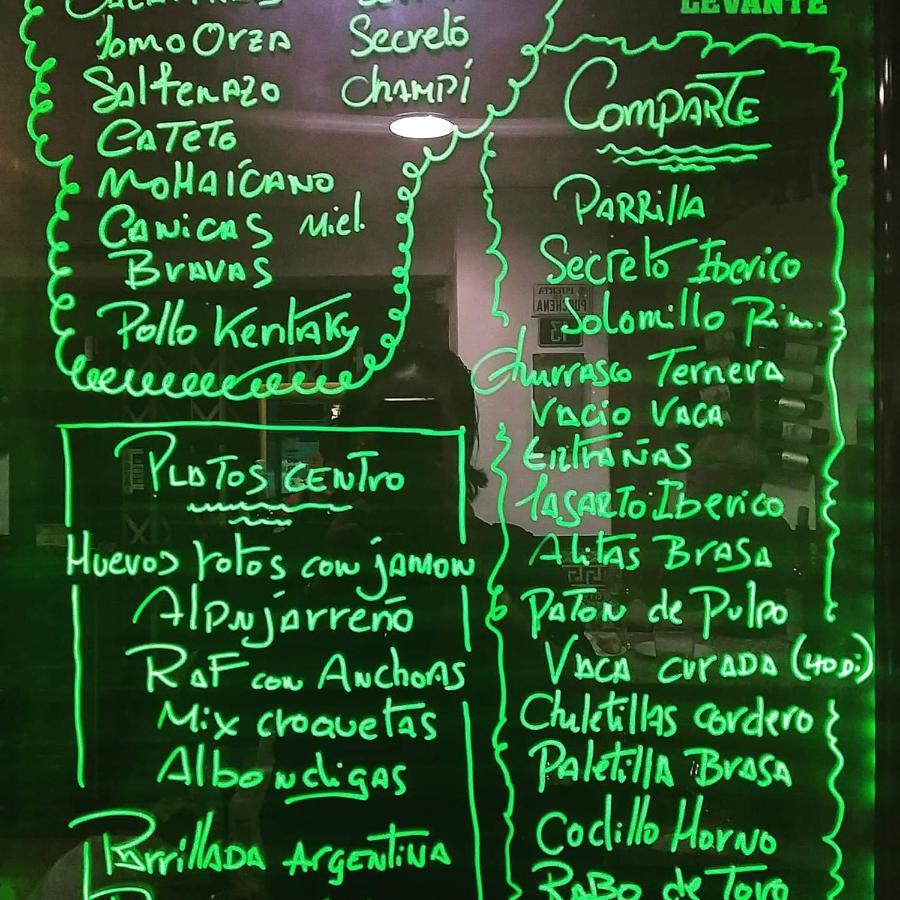 LEVANTE
Lomo Orza Secreto
Salteñazo Champí
Cateto
Mohaícano
Canicas Miel
Bravas
Pollo Kentaky
Platos Centro
Huevos rotos con jamon
Alpujarreño
Raf con Anchoas
Mix croquetas
Albondigas
Parrillada Argentina
Comparte
Parrilla
Secreto Iberico
Solomillo Pim.
Churrasco Ternera
Vacio Vaca
Entrañas
Lagarto Iberico
Alitas Brasa
Paton de Pulpo
Vaca curada (40 Di)
Chuletillas cordero
Paletilla Brasa
Codillo Horno
Rabo de Toro